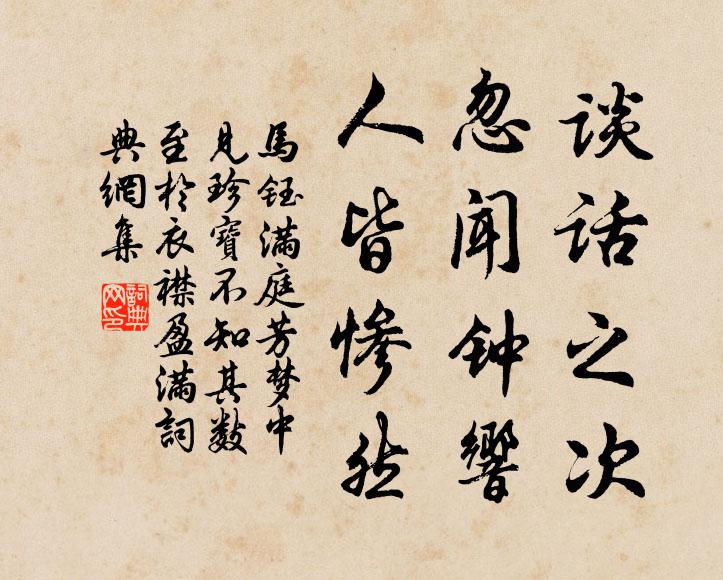 谈话之次
忽闻钟響
人皆惨然
馬鈺满庭芳梦中
見珍寶不知其数
至於衣襟盈满詞
典網集
詞典
网印